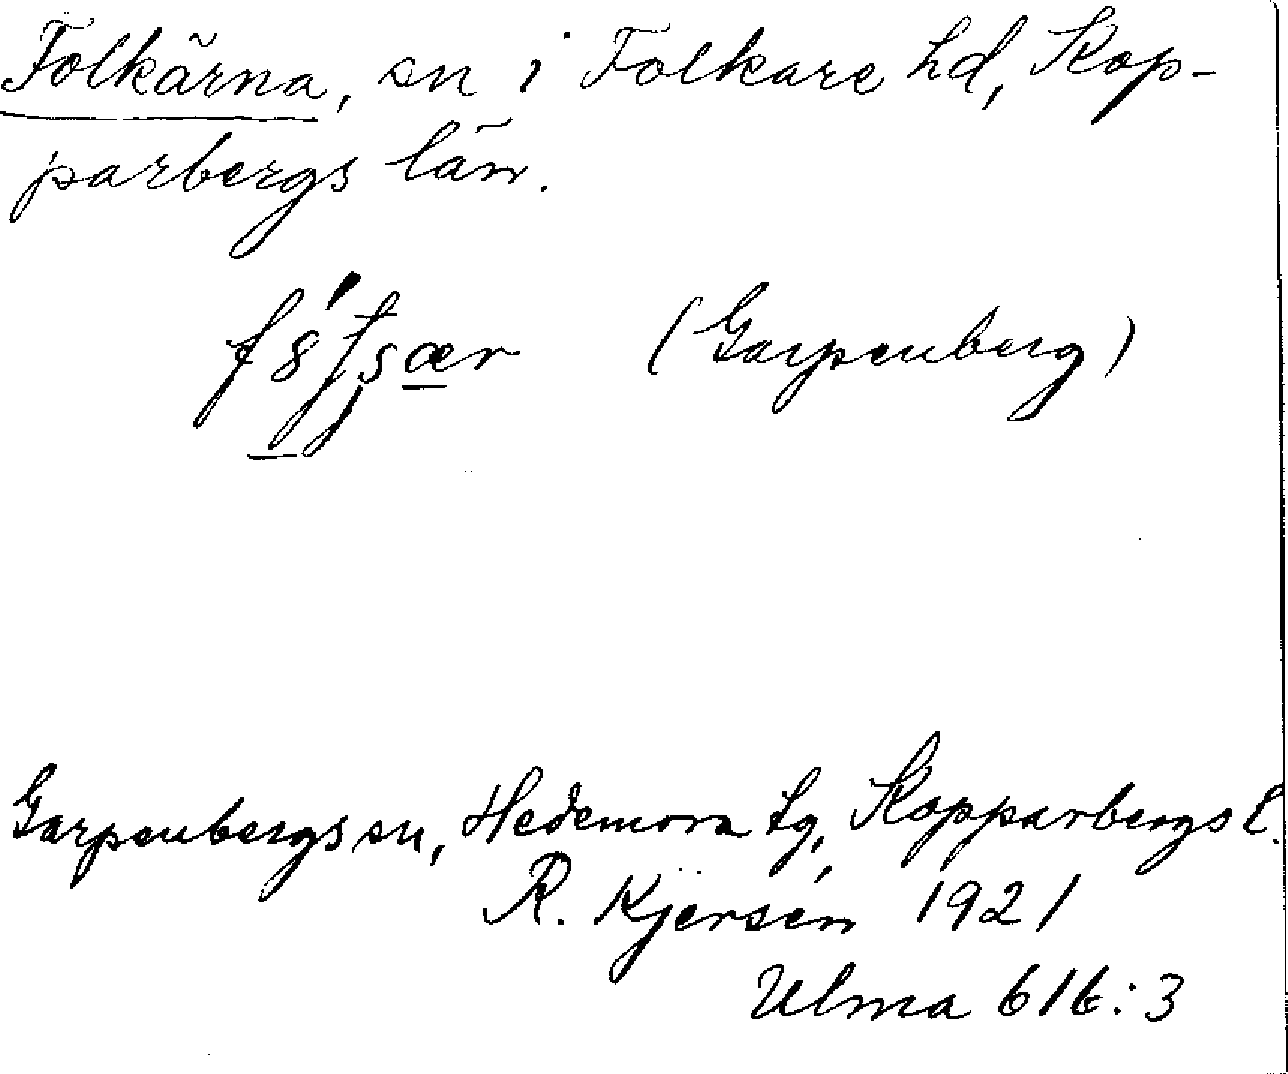 Folkärna, sn i Folkare hd, Kop-
parbergs län.
(Garpenberg)
Garpenbergs sn, Hedemora tg, Kopparbergs l.
R. Kjersén 1921
Ulma 616:3